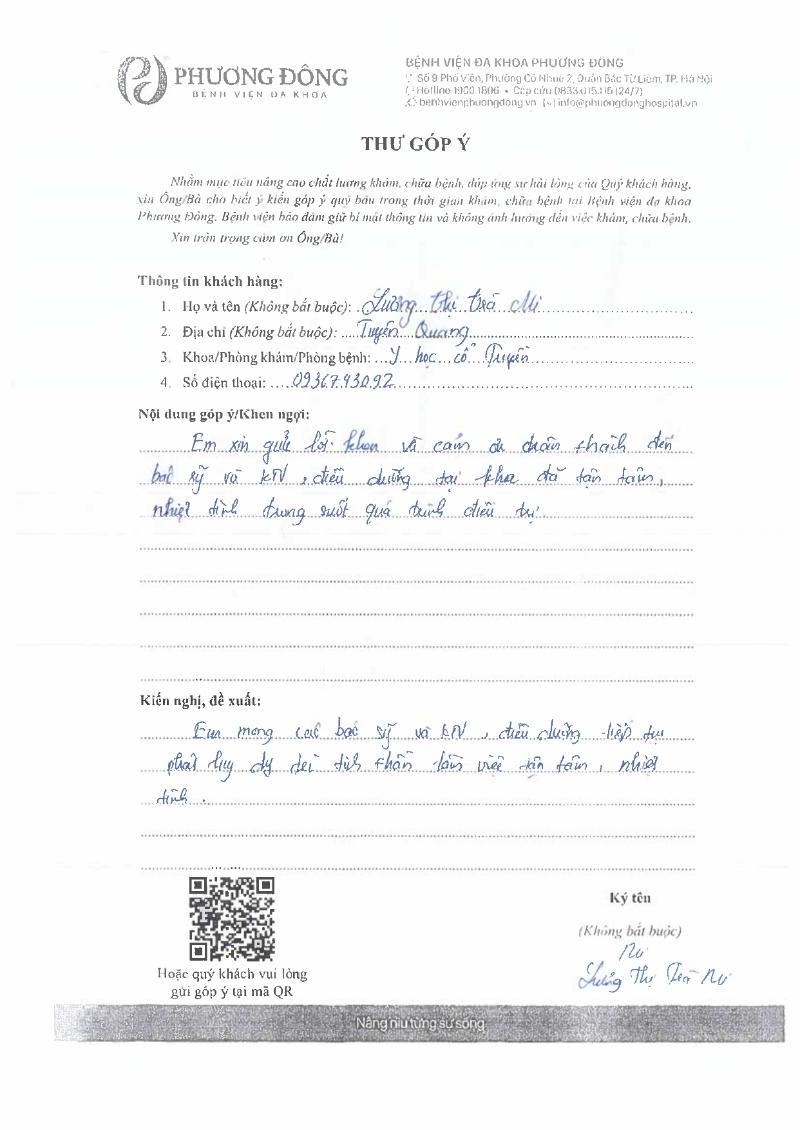 PHƯƠNG ĐÔNG
BỆNH VIỆN ĐA KHOA
BỆNH VIỆN ĐA KHOA PHƯƠNG ĐÔNG
Số 9 Phố Viên, Phường Cổ Nhuế 2, Quận Bắc Từ Liêm, TP. Hà Nội
Hotline 1900 1806 • Cấp cứu 0833 015 115 (24/7)
benhvienphuongdong.vn info@phuongdonghospital.vn
THƯ GÓP Ý
Nhằm mục tiêu nâng cao chất lượng khám, chữa bệnh, đáp ứng sự hài lòng của Quý khách hàng,
xin Ông/Bà cho biết ý kiến góp ý quý báu trong thời gian khám, chữa bệnh tại Bệnh viện đa khoa
Phương Đông. Bệnh viện bảo đảm giữ bí mật thông tin và không ảnh hưởng đến việc khám, chữa bệnh.
Xin trân trọng cảm ơn Ông/Bà!
Thông tin khách hàng:
1. Họ và tên (Không bắt buộc): Lường Thị Trà
2. Địa chỉ (Không bắt buộc): Tuyên Quang
3. Khoa/Phòng khám/Phòng bệnh: Y học cổ Truyền
4. Số điện thoại: 0936793092
Nội dung góp ý/Khen ngợi:
Em xin gửi lời khen và cảm ơn chân thành đến
bác sỹ và KTV, điều dưỡng tại khoa đã tận tâm,
nhiệt tình trong suốt quá trình điều trị
Kiến nghị, đề xuất:
Em mong các bác sỹ và KTV, điều dưỡng tiếp tục
phát huy duy trì tinh thần làm việc tận tâm, nhiệt
tình.
Hoặc quý khách vui lòng
gửi góp ý tại mã QR
Ký tên
(Không bắt buộc)
Lường Thị Trà
Nâng niu từng sự sống